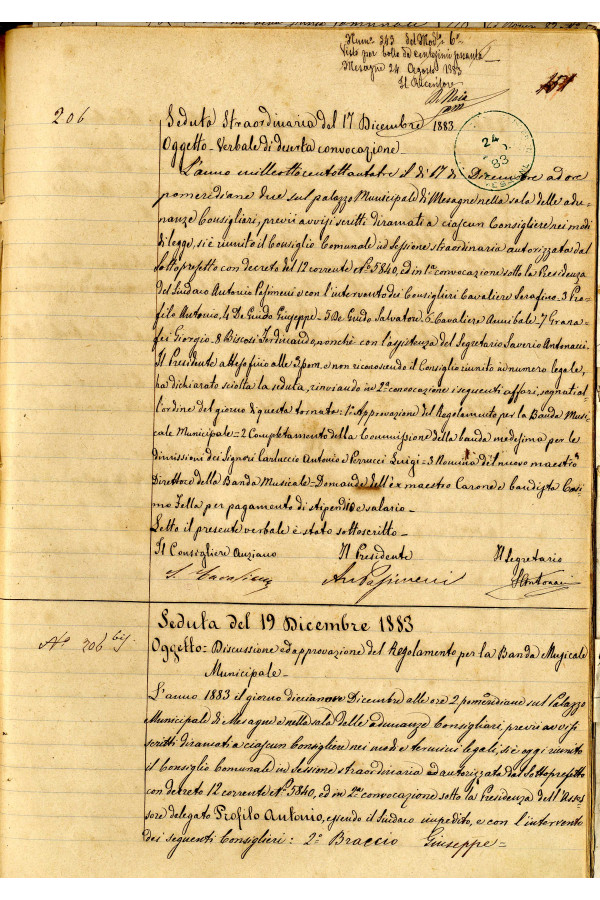 Num° 343 del Mod° 6°
Visto per bollo da centesimi sessanta
Mesagne 24 Agosto 1883
Il Ricevitore
151
24
83
206
Seduta Straordinaria del 17 Dicembre 1883
Oggetto - Verbale di deserta convocazione -
L'anno milleottocentottantatre il dì 17 di Dicembre ad ore
pomeridiane due sul palazzo Municipale di Mesagne nella sala delle adu-
nanze Consigliari, previi avvisi scritti diramati a ciascun Consigliere nei modi
di legge, si è riunito il Consiglio Comunale in Sessione straordinaria autorizzata dal
Sottoprefetto con decreto del 12 corrente N° 5840, ed in 1ª convocazione sotto la Presidenza
del Sindaco Antonio Pasimeni e con l'intervento dei Consiglieri Cavaliere Serafino - 3 Pro-
filo Antonio, 4 De Guido Giuseppe - 5 De Guido Salvatore - 6 Cavaliere Annibale - 7 Grana-
fei Giorgio - 8 Biscosi Ferdinando, nonchè con l'assistenza del Segretario Saverio Antonucci.
Il Presidente atteso fino alle 3 pom. e non ricorrendo il Consiglio riunito in numero legale,
ha dichiarato sciolta la seduta, rinviando in 2ª convocazione i seguenti affari, segnati al-
l'ordine del giorno di questa tornata: 1° Approvazione del Regolamento per la Banda Musi-
cale Municipale = 2 Completamento della Commissione della banda medesima per le
dimissioni dei Signori Carluccio Antonio e Perrucci Luigi = 3 Nomina del nuovo maestro
Direttore della Banda Musicale = Domande dell'ex maestro Carone e bandista Cosi-
mo Zella per pagamento di stipendio e salario -
Letto il presente verbale è stato sottoscritto -
Il Consigliere Anziano Il Presidente Il Segretario
S. Cavaliere Ant Pasimeni S Antonucci
N° 206 bis
Seduta del 19 Dicembre 1883
Oggetto: Discussione ed approvazione del Regolamento per la Banda Musicale
Municipale -
L'anno 1883 il giorno diciannove Dicembre alle ore 2 pomeridiane sul Palazzo
Municipale di Mesagne e nella sala delle adunanze Consigliari, previi avvisi
scritti diramati a ciascun Consigliere nei modi e termini legali, si è oggi riunito
il Consiglio Comunale in Sessione straordinaria ed autorizzata dal Sottoprefetto
con decreto 12 corrente N° 5840, ed in 2ª convocazione sotto la Presidenza dell'Asses-
sore delegato Profilo Antonio, essendo il Sindaco impedito, e con l'intervento
dei seguenti Consiglieri: 2° Braccio Giuseppe =